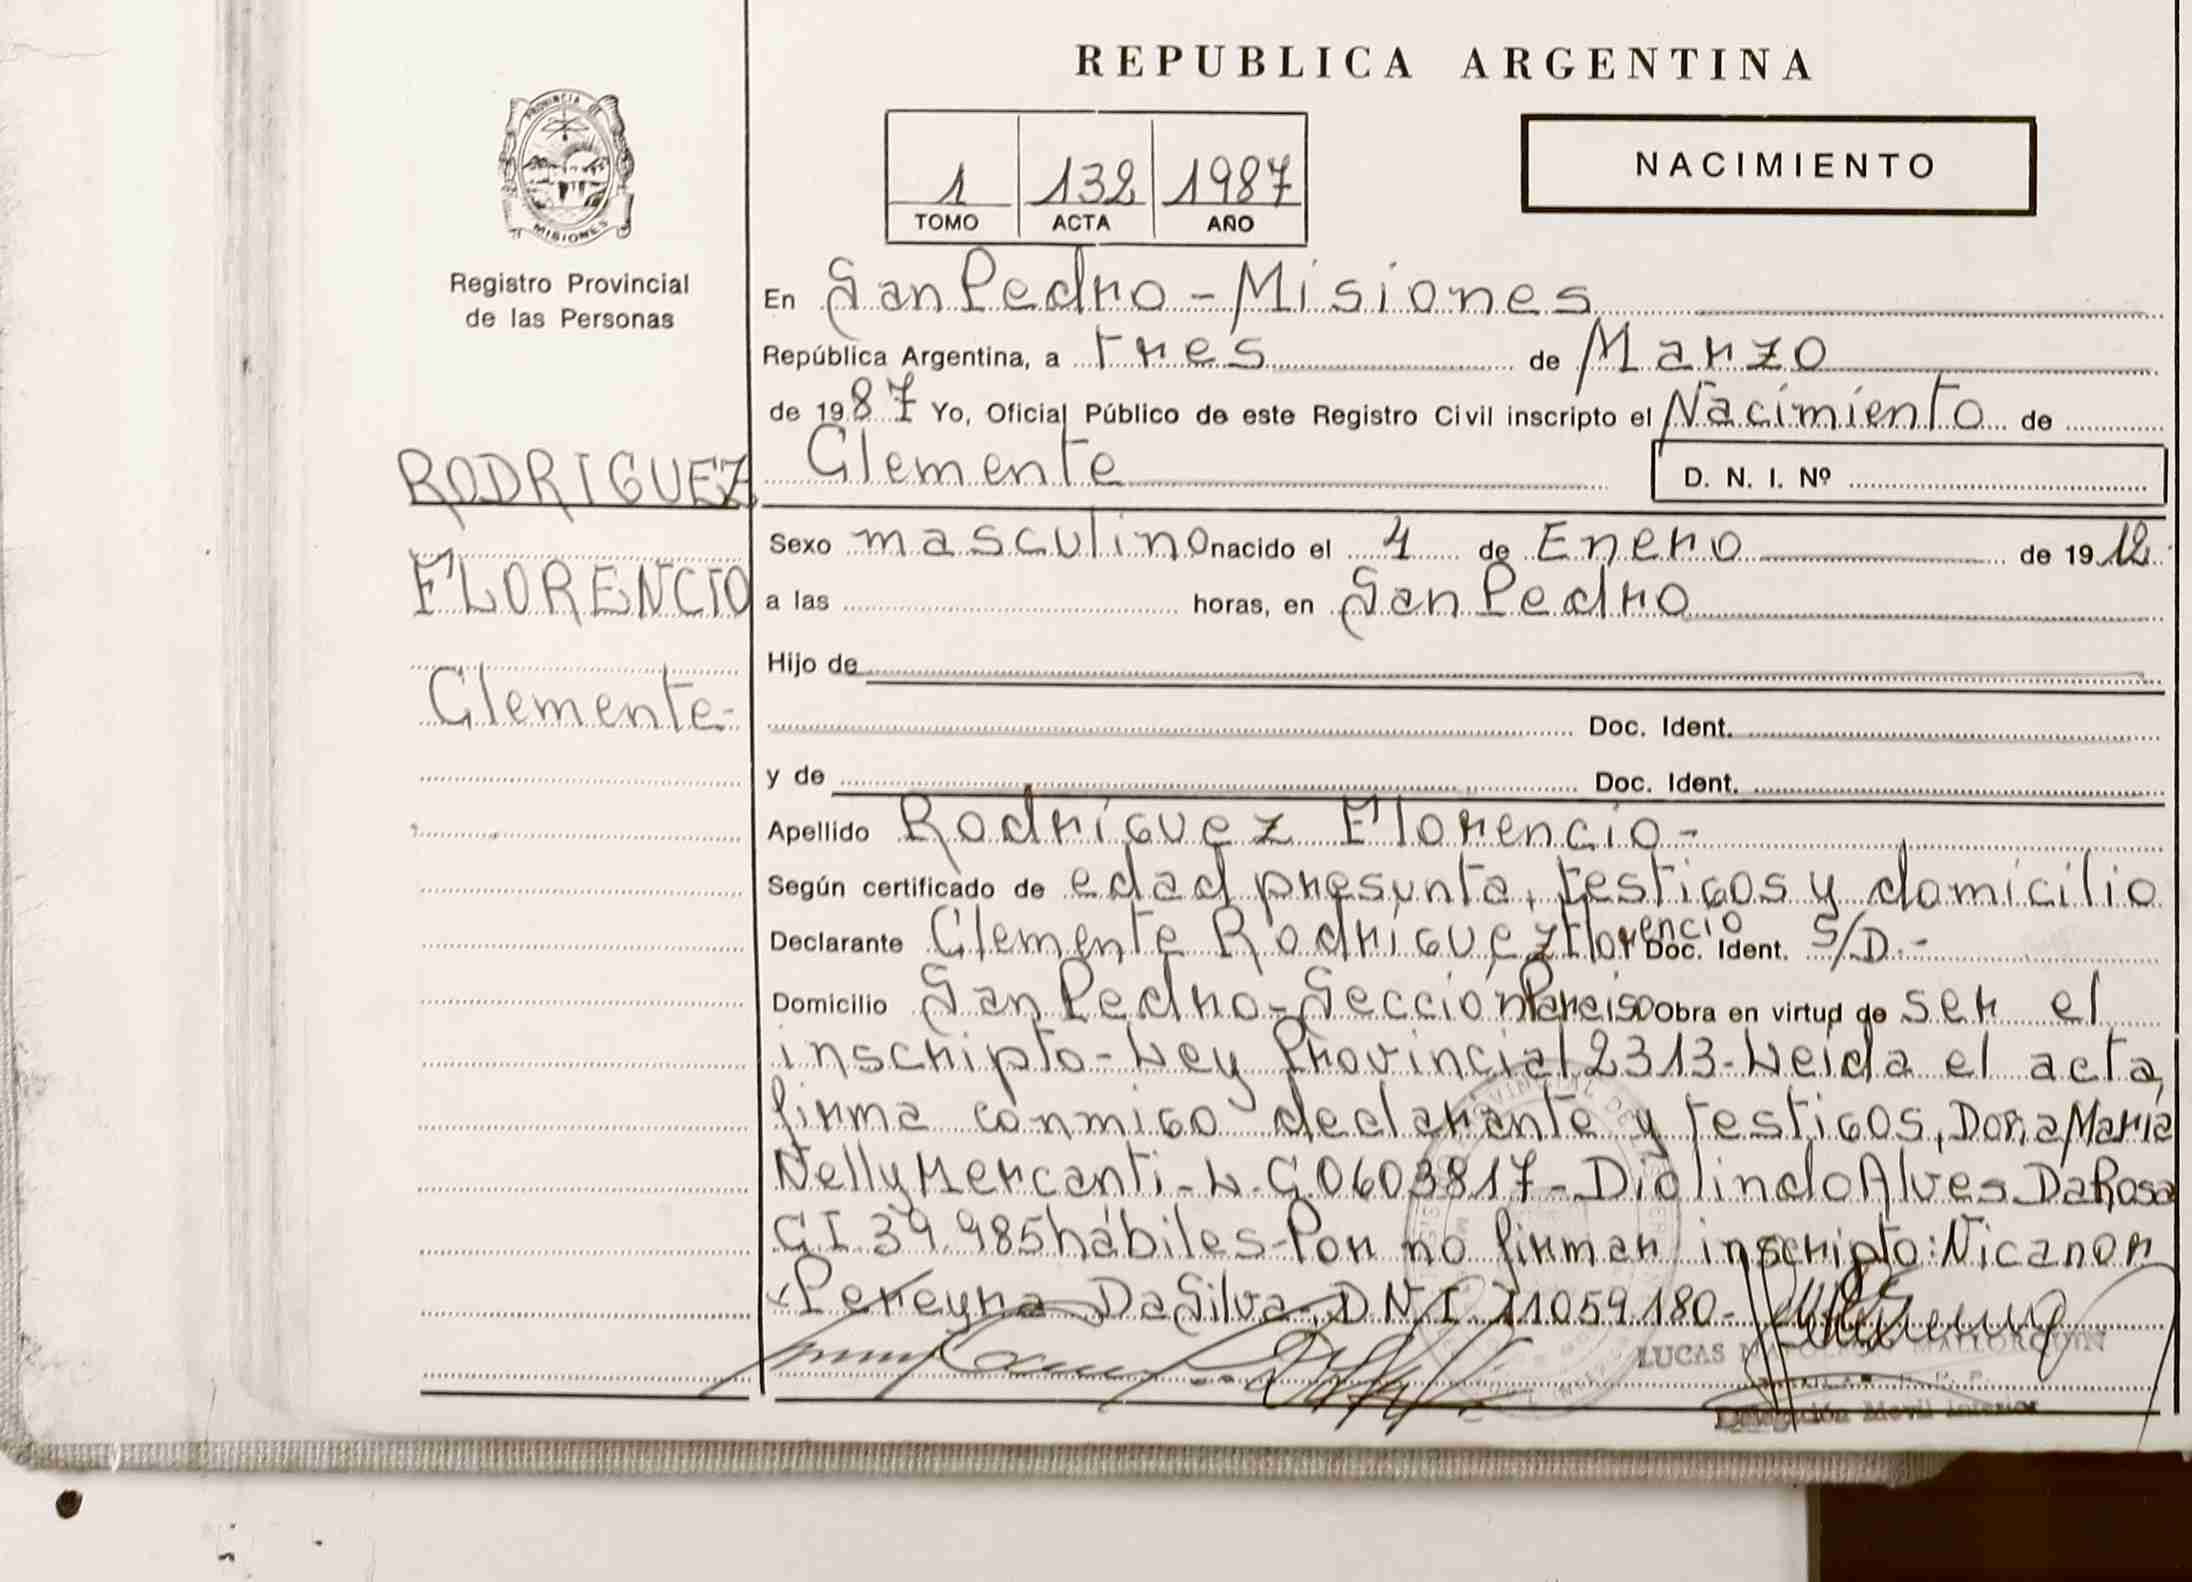 REPUBLICA ARGENTINA
PROVINCIA DE
MISIONES
Registro Provincial
de las Personas
1 132 1987
TOMO ACTA AÑO
NACIMIENTO
En San Pedro - Misiones
República Argentina, a tres de Marzo
de 1987 Yo, Oficial Público de este Registro Civil inscripto el Nacimiento de
RODRIGUEZ
Clemente
D. N. I. Nº
Sexo masculino nacido el 4 de Enero de 1912
FLORENCIO
a las horas, en San Pedro
Hijo de
Clemente-
Doc. Ident.
y de Doc. Ident.
Apellido Rodríguez Florencio-
Según certificado de edad presunta, testigos y domicilio
Declarante Clemente Rodríguez Florencio Doc. Ident. S/D.-
Domicilio San Pedro-Sección Paraiso Obra en virtud de ser el
inscripto-Ley Provincial 2313-Leida el acta,
firma conmigo declarante y testigos, Doña María
Nelly Mercanti-L.C.0603817-Diolindo Alves Da Rosa
CI 39.985 hábiles-Por no firmar inscripto: Nicanor
Pereyra Da Silva-D.N.I. 11059.180-
LUCAS MALLORQUIN
Delegación Movil Interior